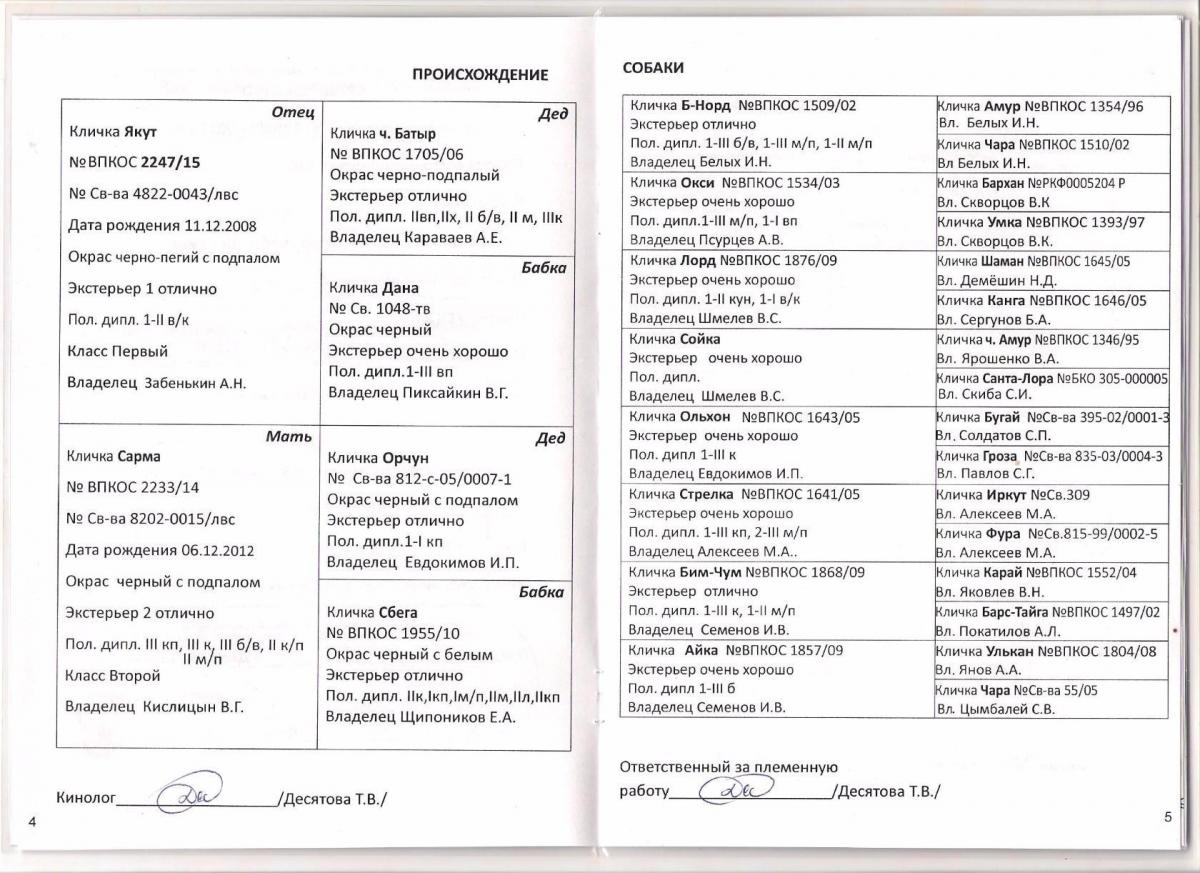 ПРОИСХОЖДЕНИЕ
Отец
Кличка Якут
№ВПКОС 2247/15
№ Св-ва 4822-0043/лвс
Дата рождения 11.12.2008
Окрас черно-пегий с подпалом
Экстерьер 1 отлично
Пол. дипл. 1-II в/к
Класс Первый
Владелец Забенькин А.Н.
Дед
Кличка ч. Батыр
№ ВПКОС 1705/06
Окрас черно-подпалый
Экстерьер отлично
Пол. дипл. IIвп,IIх, II б/в, II м, IIIк
Владелец Караваев А.Е.
Бабка
Кличка Дана
№ Св. 1048-тв
Окрас черный
Экстерьер очень хорошо
Пол. дипл.1-III вп
Владелец Пиксайкин В.Г.
Мать
Кличка Сарма
№ ВПКОС 2233/14
№ Св-ва 8202-0015/лвс
Дата рождения 06.12.2012
Окрас черный с подпалом
Экстерьер 2 отлично
Пол. дипл. III кп, III к, III б/в, II к/п
II м/п
Класс Второй
Владелец Кислицын В.Г.
Дед
Кличка Орчун
№ Св-ва 812-с-05/0007-1
Окрас черный с подпалом
Экстерьер отлично
Пол. дипл.1-I кп
Владелец Евдокимов И.П.
Бабка
Кличка Сбега
№ ВПКОС 1955/10
Окрас черный с белым
Экстерьер отлично
Пол. дипл. IIк,Iкп,Iм/п,IIм,IIл,IIкп
Владелец Щипоников Е.А.
Кинолог Дес /Десятова Т.В./
4
СОБАКИ
Кличка Б-Норд №ВПКОС 1509/02
Экстерьер отлично
Пол. дипл. 1-III б/в, 1-III м/п, 1-II м/п
Владелец Белых И.Н.
Кличка Амур №ВПКОС 1354/96
Вл. Белых И.Н.
Кличка Чара №ВПКОС 1510/02
Вл Белых И.Н.
Кличка Окси №ВПКОС 1534/03
Экстерьер очень хорошо
Пол. дипл.1-III м/п, 1-I вп
Владелец Псурцев А.В.
Кличка Бархан №РКФ0005204 Р
Вл. Скворцов В.К
Кличка Умка №ВПКОС 1393/97
Вл. Скворцов В.К.
Кличка Лорд №ВПКОС 1876/09
Экстерьер очень хорошо
Пол. дипл. 1-II кун, 1-I в/к
Владелец Шмелев В.С.
Кличка Шаман №ВПКОС 1645/05
Вл. Демёшин Н.Д.
Кличка Канга №ВПКОС 1646/05
Вл. Сергунов Б.А.
Кличка Сойка
Экстерьер очень хорошо
Пол. дипл.
Владелец Шмелев В.С.
Кличка ч. Амур №ВПКОС 1346/95
Вл. Ярошенко В.А.
Кличка Санта-Лора №БКО 305-000005
Вл. Скиба С.И.
Кличка Ольхон №ВПКОС 1643/05
Экстерьер очень хорошо
Пол. дипл 1-III к
Владелец Евдокимов И.П.
Кличка Бугай №Св-ва 395-02/0001-3
Вл. Солдатов С.П.
Кличка Гроза №Св-ва 835-03/0004-3
Вл. Павлов С.Г.
Кличка Стрелка №ВПКОС 1641/05
Экстерьер очень хорошо
Пол. дипл. 1-III кп, 2-III м/п
Владелец Алексеев М.А..
Кличка Иркут №Св.309
Вл. Алексеев М.А.
Кличка Фура №Св.815-99/0002-5
Вл. Алексеев М.А.
Кличка Бим-Чум №ВПКОС 1868/09
Экстерьер отлично
Пол. дипл. 1-III к, 1-II м/п
Владелец Семенов И.В.
Кличка Карай №ВПКОС 1552/04
Вл. Яковлев В.Н.
Кличка Барс-Тайга №ВПКОС 1497/02
Вл. Покатилов А.Л.
Кличка Айка №ВПКОС 1857/09
Экстерьер очень хорошо
Пол. дипл 1-III б
Владелец Семенов И.В.
Кличка Улькан №ВПКОС 1804/08
Вл. Янов А.А.
Кличка Чара №Св-ва 55/05
Вл. Цымбалей С.В.
Ответственный за племенную
работу Дес /Десятова Т.В./
5